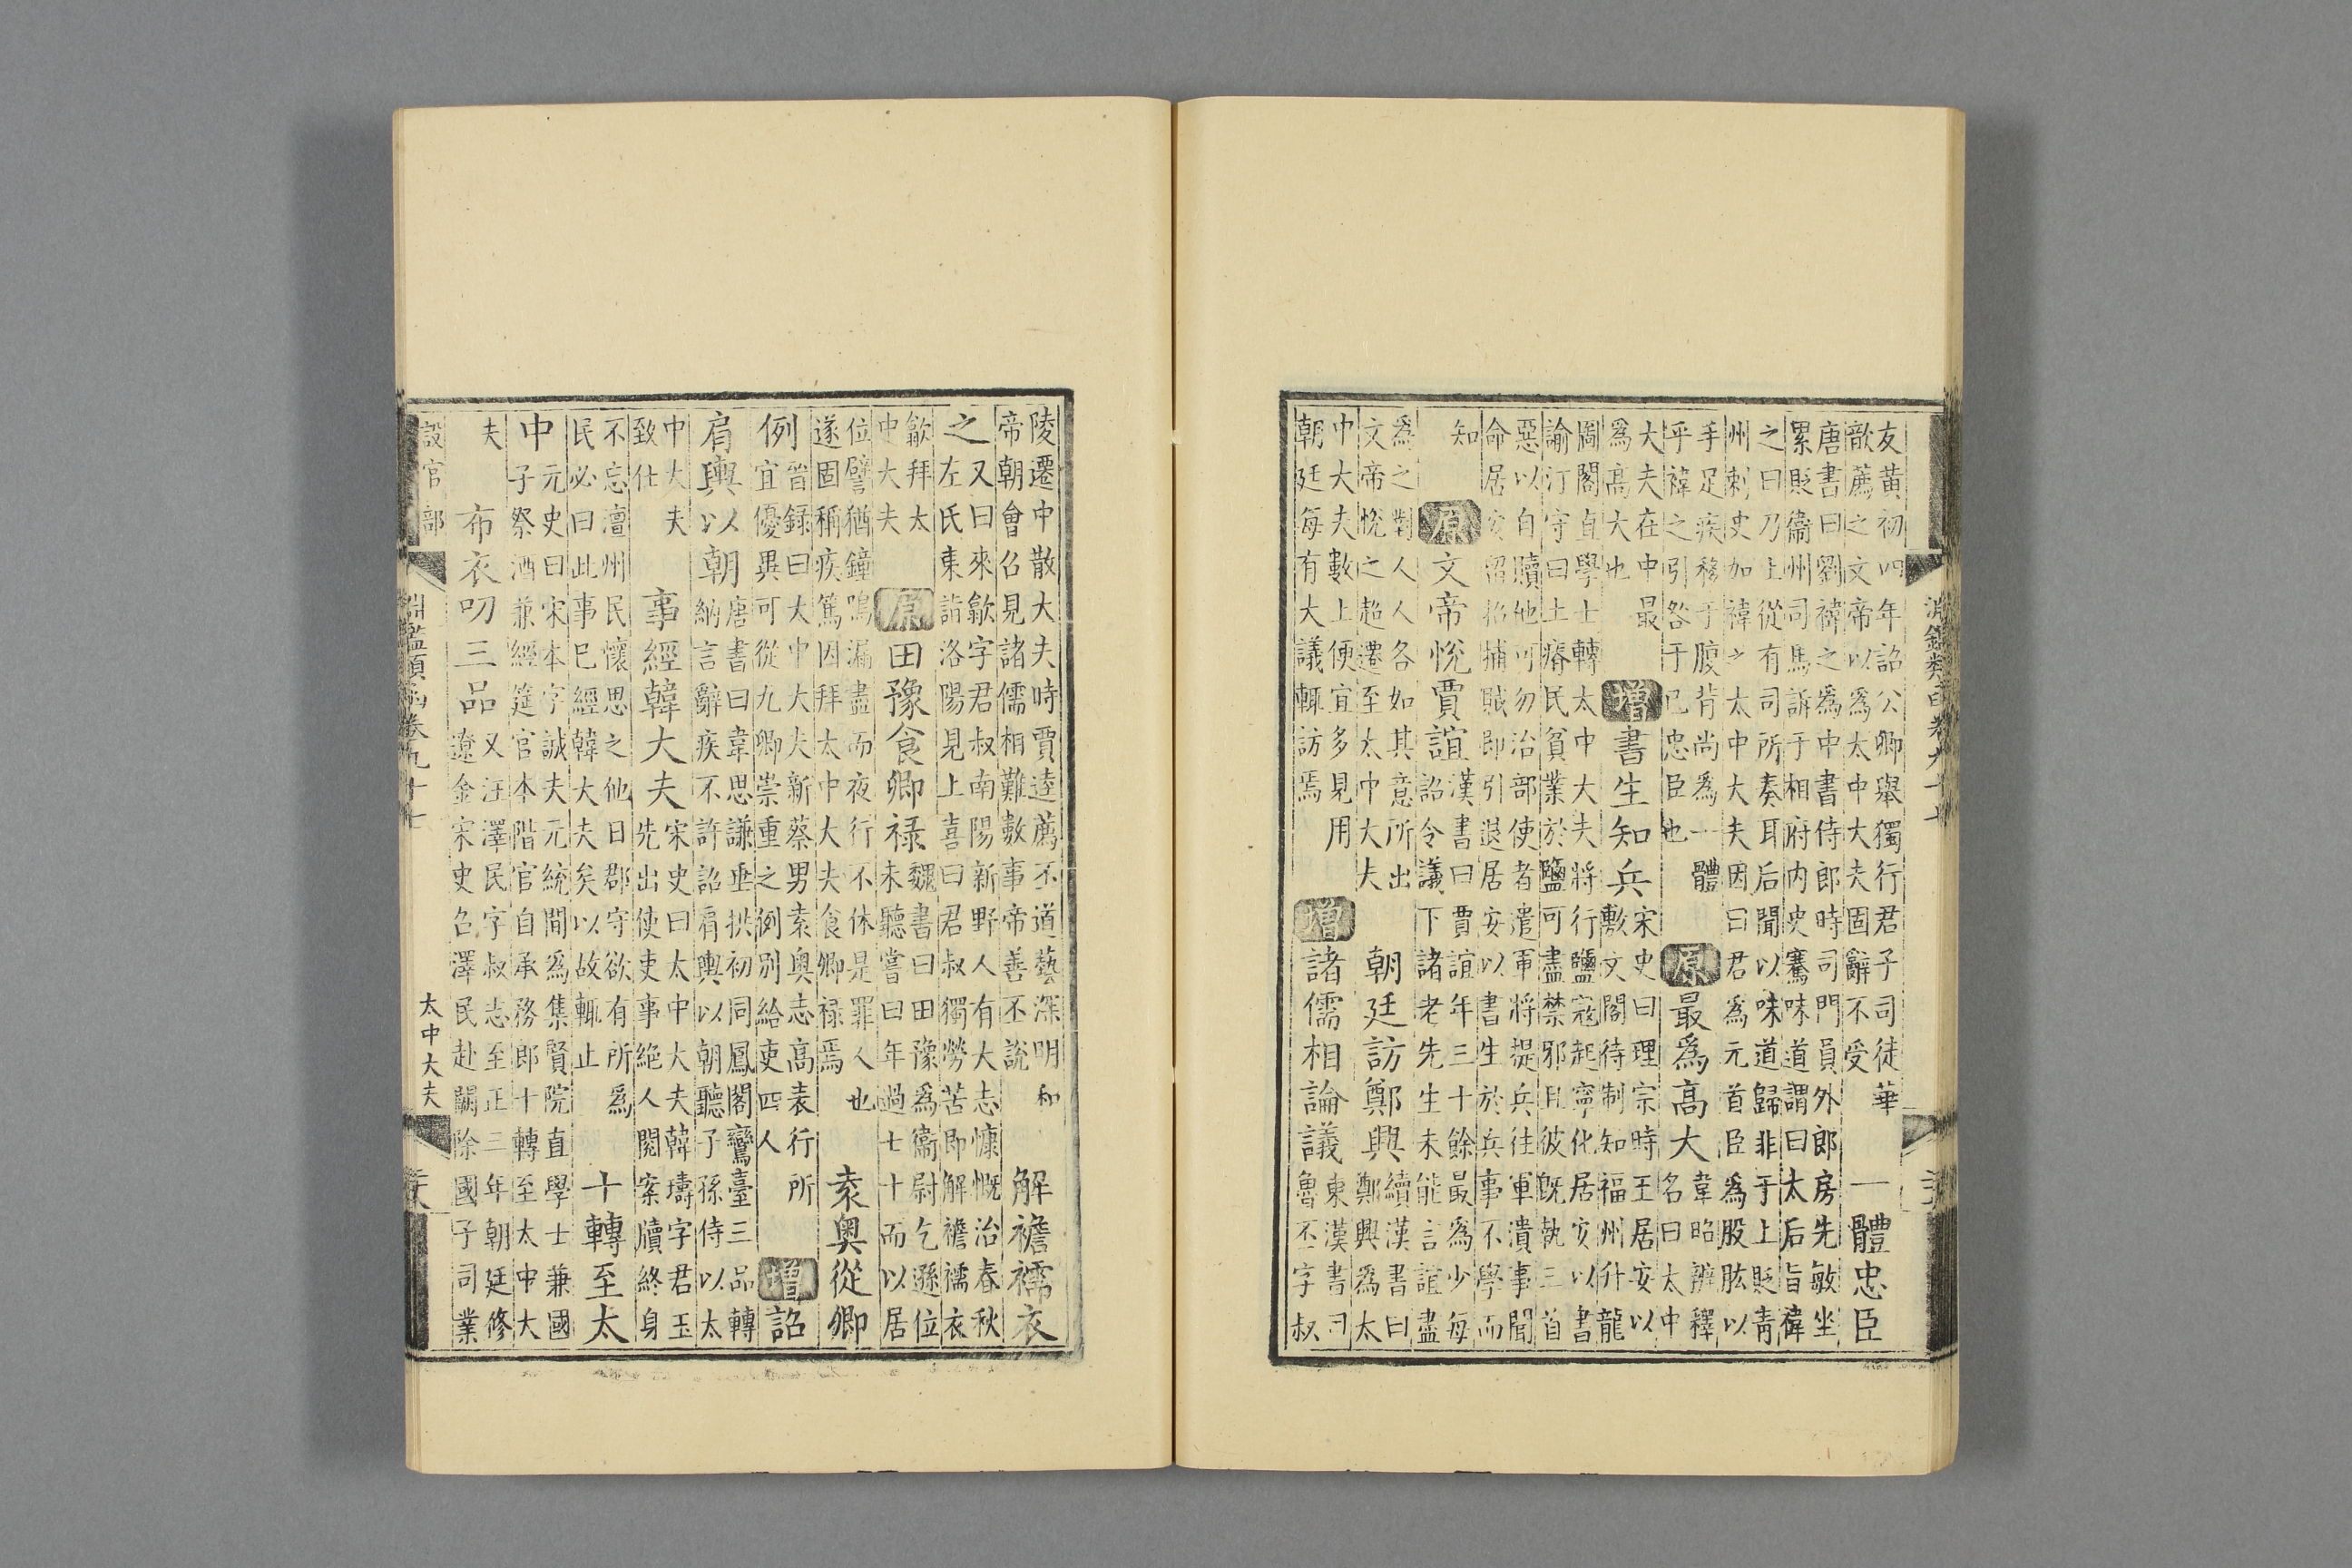 淵鑑類函卷九十七
友黃初四年詔公卿舉獨行君子司徒華
歆薦之文帝以為太中大夫固辭不受
一體忠臣
唐書曰劉禕之為中書侍郎時司門員外郎房先敏坐
累貶衞州司馬訴于相府内史騫味道謂曰太后旨禕
之曰乃上從有司所奏耳后聞以味道歸非于上貶青
州刺史加禕之太中大夫因曰君為元首臣為股肱以
手足疾移于腹背尚為一體
乎禕之引咎于已忠臣也
原最為高大
韋昭辨釋
名曰太中
大夫在中最
為高大也
增書生知兵
宋史曰理宗時王居安以
敷文閣待制知福州升龍
圖閣直學士轉太中大夫將行鹽寇起寧化居安以書
諭汀守曰土瘠民貧業於鹽可盡禁邪且彼既執三首
惡以自贖他可勿治部使者遣軍將提兵往軍潰事聞
命居安詔招捕賊即引退居安以書生於兵事不學而
知
原文帝悅賈誼
漢書曰賈誼年三十餘最為少每
詔令議下諸老先生未能言誼盡
為之對人人各如其意所出
文帝悅之超遷至太中大夫
朝廷訪鄭興
續漢書曰
鄭興為太
中大夫數上便宜多見用
朝廷每有大議輒訪焉
增諸儒相論議
東漢書曰
魯丕字叔
陵遷中散大夫時賈逵薦丕道藝深明和
帝朝會召見諸儒相難數事帝善丕說
解襜襦衣
之
又曰來歙字君叔南陽新野人有大志慷慨治春秋
左氏東詣洛陽見上喜曰君叔獨勞苦即解襜襦衣
歙拜太
中大夫
原田豫食卿祿
魏書曰田豫為衞尉乞遜位
未聽嘗曰年過七十而以居
位譬猶鐘鳴漏盡而夜行不休是罪人也
遂固稱疾篤因拜太中大夫食卿祿焉
袁奧從卿
例
晉錄曰大中大夫新蔡男袁奧志高表行所
宜優異可從九卿崇重之例別給吏四人
增詔
肩輿以朝
唐書曰韋思謙垂拱初同鳳閣鸞臺三品轉
納言辭疾不許詔肩輿以朝聽子孫侍以太
中大夫
致仕
事經韓大夫
宋史曰太中大夫韓璹字君玉
先出使吏事絕人閱案牘終身
不忘澶州民懷思之他日郡守欲有所為
民必曰此事已經韓大夫矣以故輒止
十轉至太
中
元史曰宋本字誠夫元統間為集賢院直學士兼國
子祭酒兼經筵官本階官自承務郎十轉至太中大
夫
布衣叨三品
又汪澤民字叔志至正三年朝廷修
遼金宋史召澤民赴闕除國子司業
設官部
太中大夫
淵鑑類函卷九十七